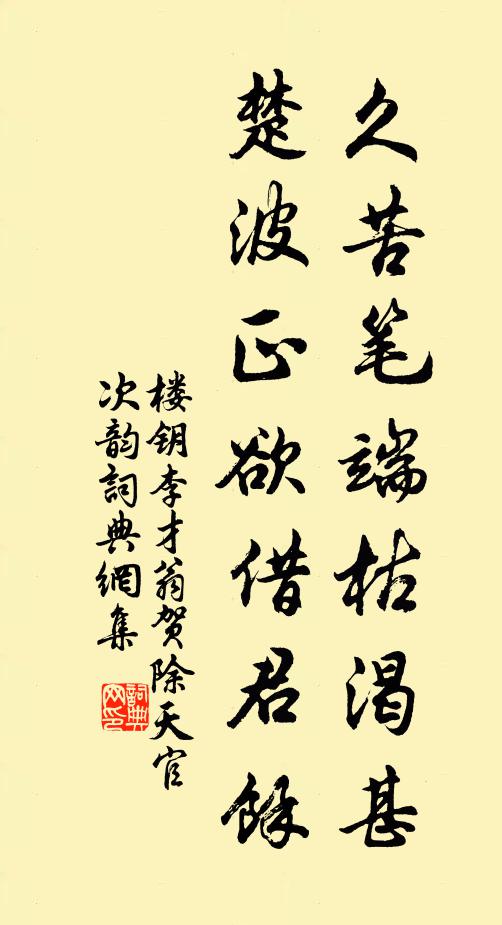 久苦笔端枯渴甚
楚波正欲借君餘
楼钥李才翁贺除天官
次韵詞典網集
詞典
网印